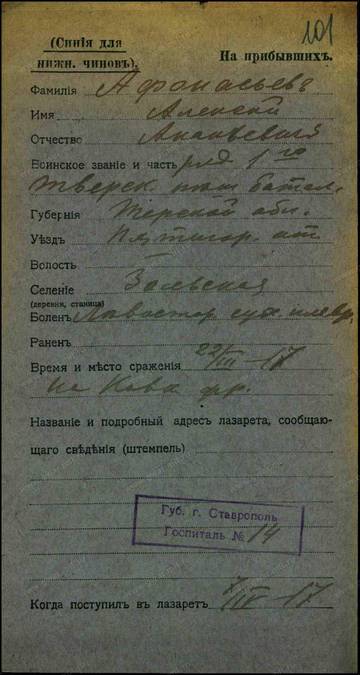 101
(Синія для
нижн. чиновъ).
На прибывшихъ.
Фамилія Афонасьевъ
Имя Алексѣй
Отчество
Воинское званіе и часть ряд. 1го
Тверск. батал.
Губернія Терской обл.
Уѣздъ Пятигор. от
Волость
Селеніе Зольская
(деревня, станица)
Боленъ сух. плевр.
Раненъ
Время и мѣсто сраженія 22/III-17
на Кавк фр.
Названіе и подробный адресъ лазарета, сообщаю-
щаго свѣдѣнія (штемпель)
Губ. г. Ставрополь
Госпиталь № 14
Когда поступилъ въ лазаретъ 7/IV-17